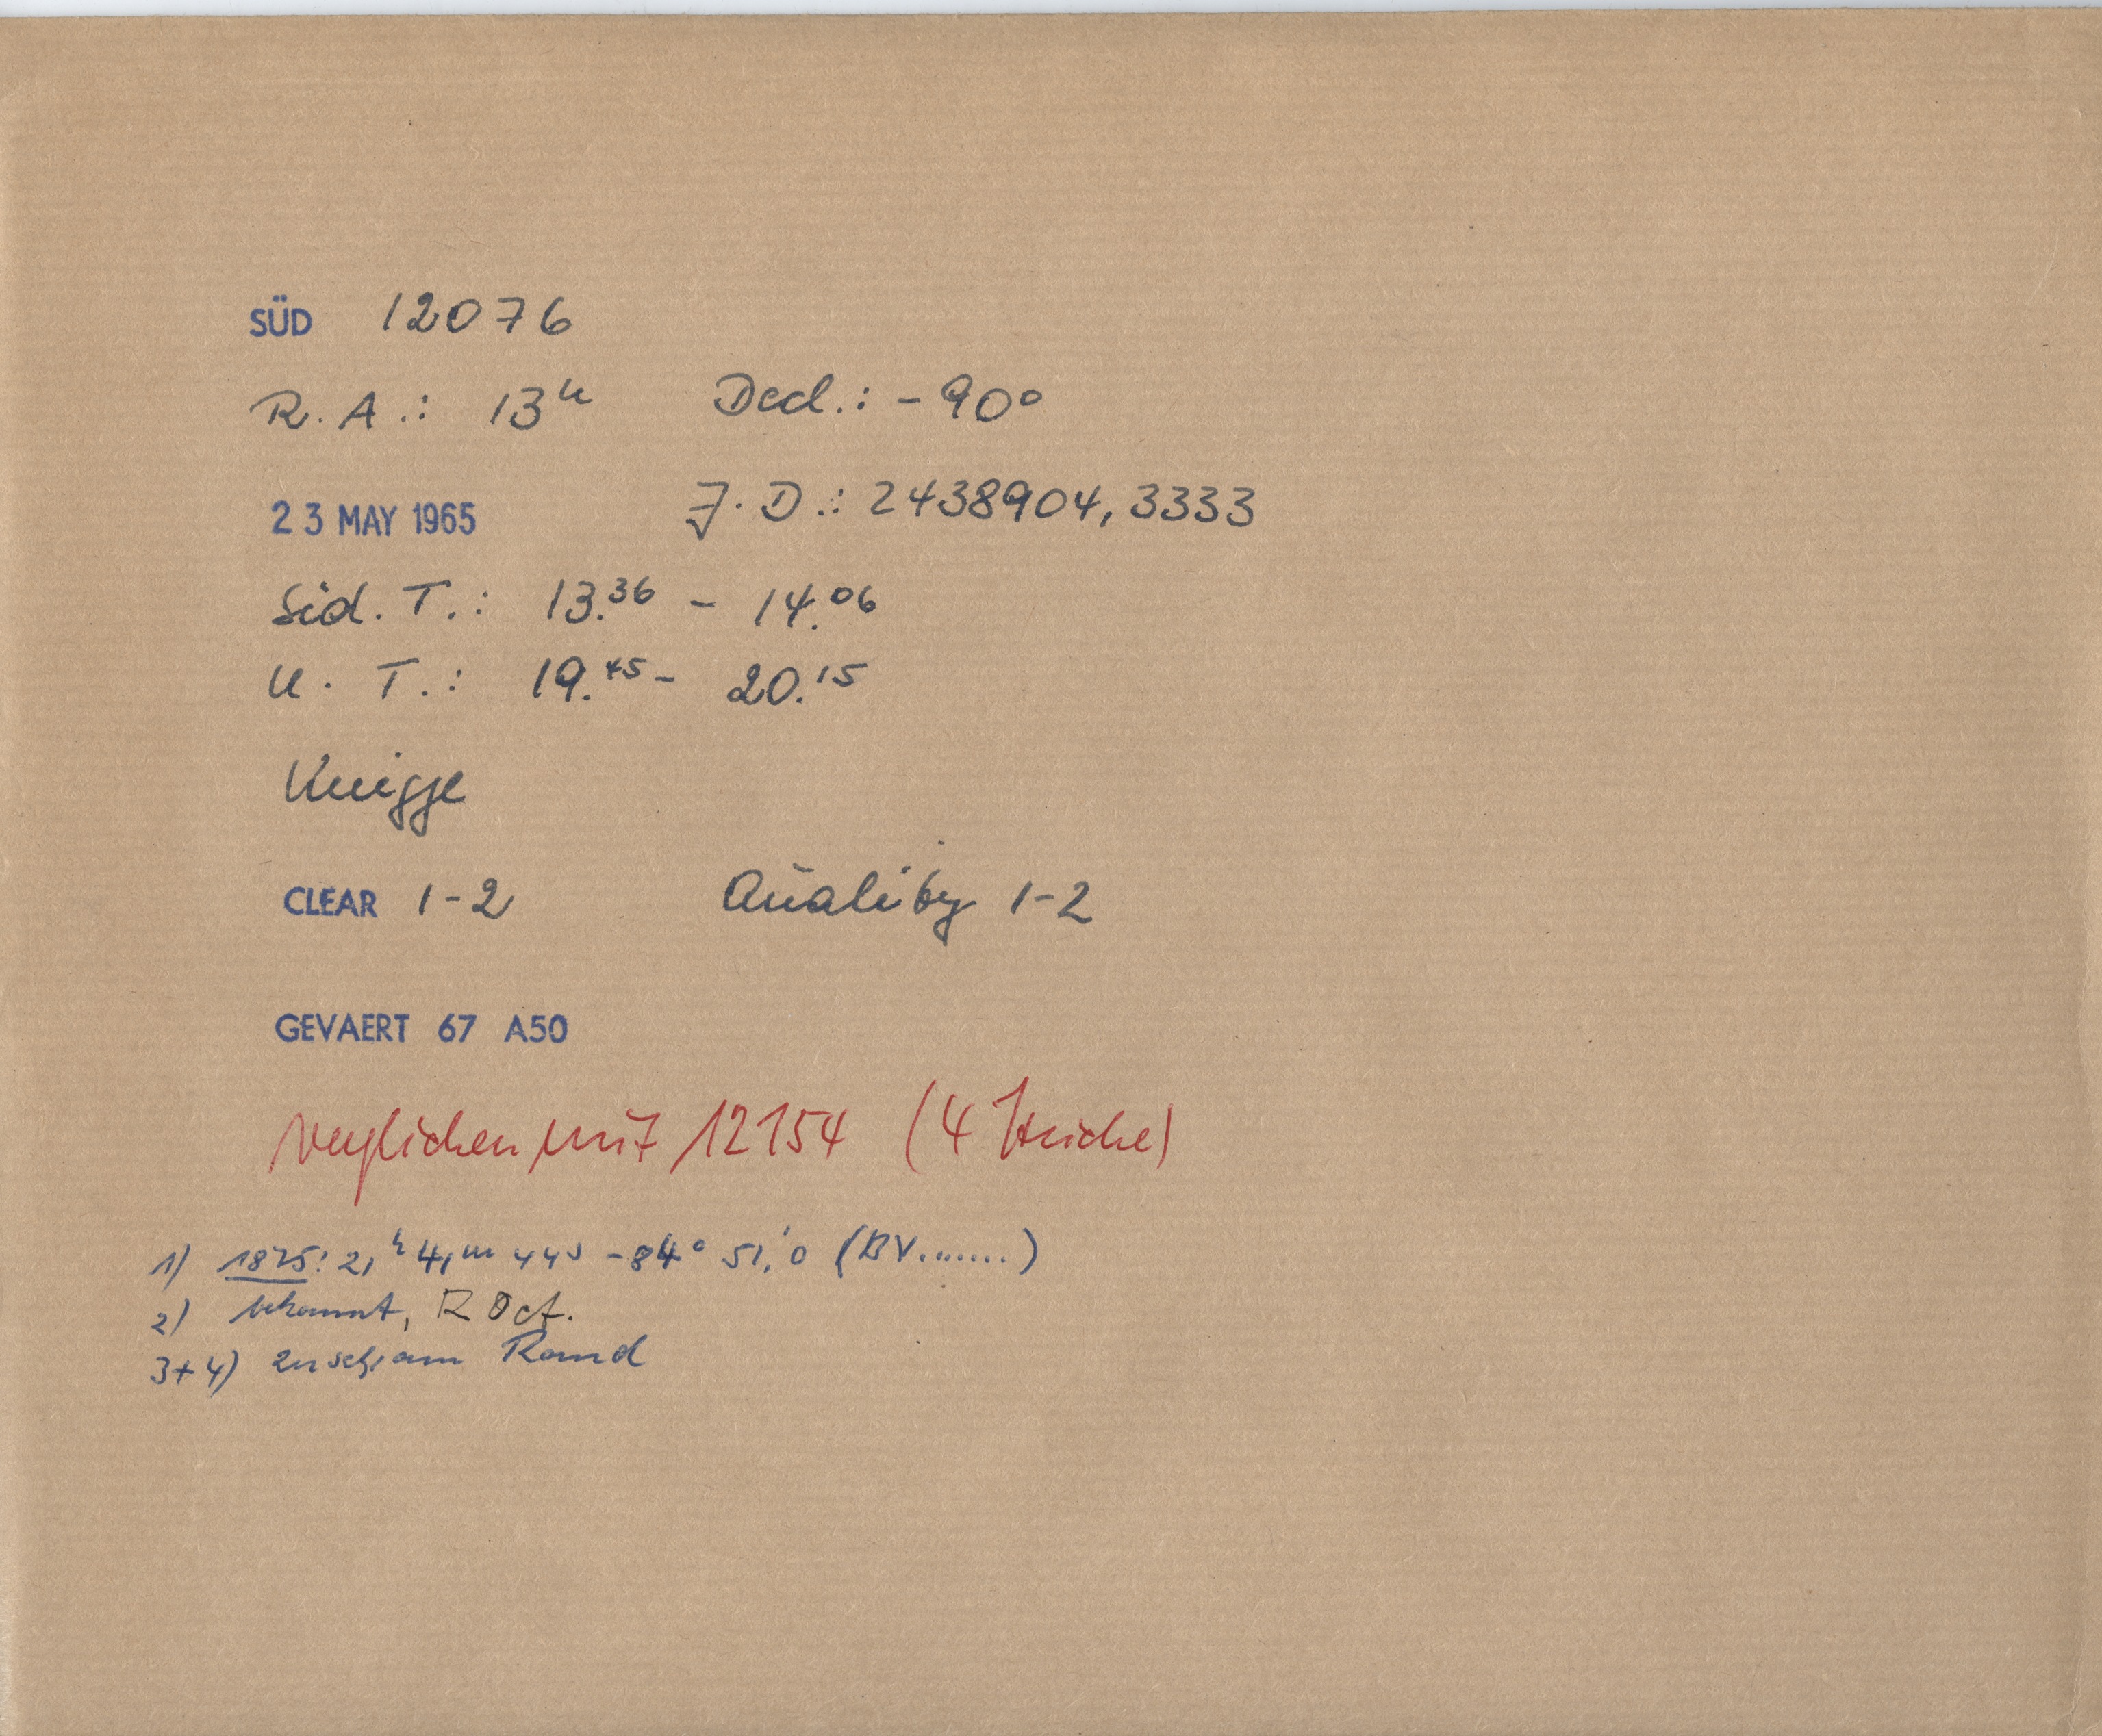 SÜD 12076
R. A.: 13ʰ Decl.: - 90°
23 MAY 1965 J. D.: 2438904,3333
Sid. T.: 13.³⁶ - 14.⁰⁶
U. T.: 19.⁴⁵ - 20.¹⁵
Knigge
CLEAR 1-2 Quality 1-2
GEVAERT 67 A50
verglichen mit 12154 (4 Striche)
1) 1875: 21ʰ 41ᵐ 44ˢ -84° 51,'0 (BV.......)
2) bekannt, R Oct.
3+4) am Rand